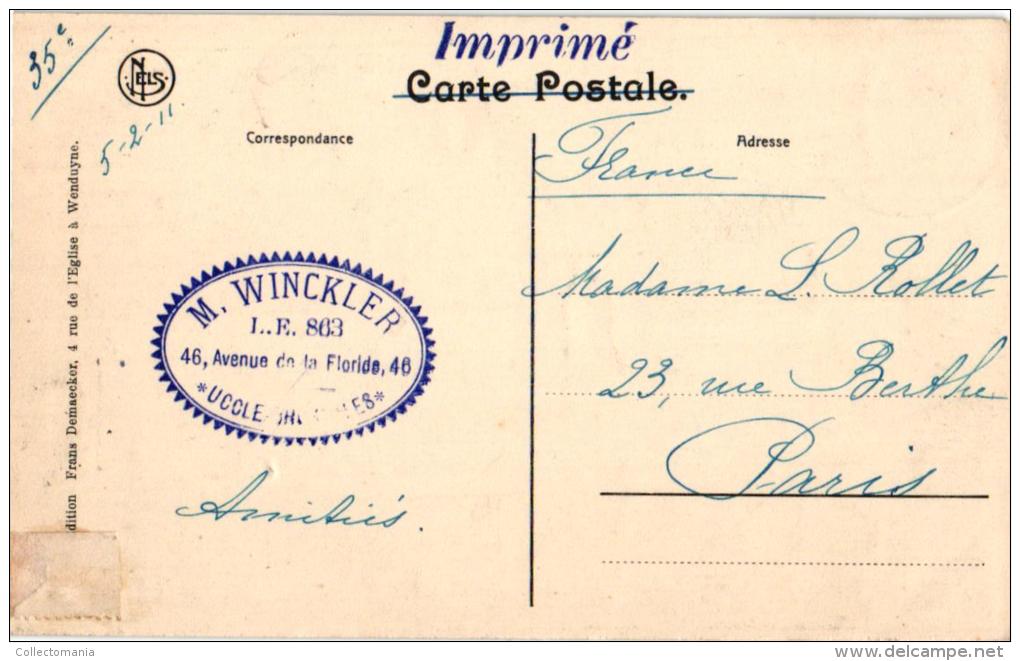 35c.
NELS
5-2-11
Imprimé
Carte Postale.
Correspondance
Adresse
France
Madame L. Rollet
23, rue Berthe
Paris
M. WINCKLER
L.E. 863
46, Avenue de la Floride, 46
*UCCLE-
Amitiés.
dition Frans Demaecker, 4 rue de l'Eglise à Wenduyne.
Collectomania
delcampe.net